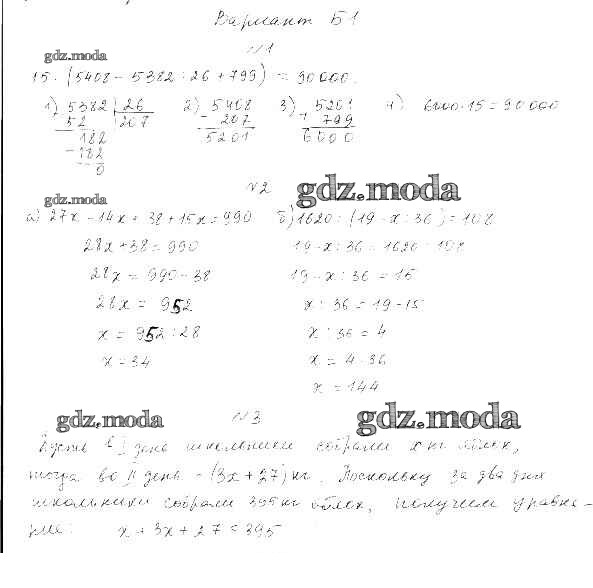 Вариант Б1
№1
gdz.moda
15 · (5408 - 5382 : 26 + 799) = 90000.
1) 5382 | 26   2) 5408   3) 5201   4) 6000·15 = 90000
52   207   - 207   + 799
182   5201   6000
- 182
0
gdz.moda
№2 gdz.moda
а) 27x - 14x + 38 + 15x = 990   б) 1620 : (19 - x : 36) = 108
28x + 38 = 990   19 - x : 36 = 1620 : 108
28x = 990 - 38   19 - x : 36 = 15
28x = 952   x : 36 = 19 - 15
x = 952 : 28   x : 36 = 4
x = 34   x = 4 · 36
x = 144
gdz.moda №3 gdz.moda
Пусть в I день школьники собрали x кг яблок,
тогда во II день - (3x + 27) кг. Поскольку за два дня
школьники собрали 395 кг яблок, получим уравне-
ние: x + 3x + 27 = 395